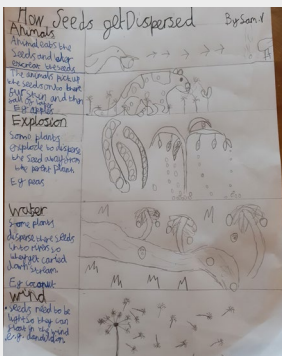 How Seeds get Dispersed
By Sam.V
Animals
Animal eats the
Seeds and later
excretes the seeds
The animals pick up
the seeds on their
fur
Eg: apples
Explosion
Some plants
explode to disperse
the seed away from
the parent plant
Eg: peas
Water
Some plants
disperse there seeds
into rivers so
they get carried
down stream
Eg: coconut
wind
• seeds need to be
light so they can
float in the wind
e.g. dandelions